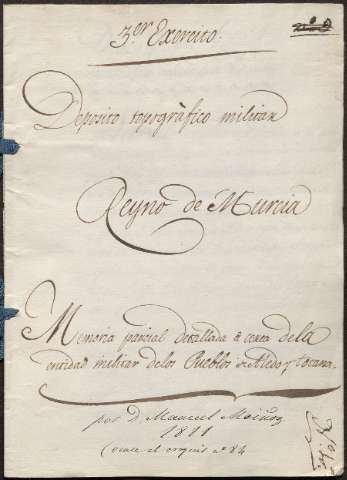 3.er Exercito.
Deposito topográfico militar
Reyno de Murcia
Memoria parcial detallada á cerca de la
entidad militar de los Pueblos de Aledo y Totana.
por D. Manuel Muñoz
1811
(vease el croquis nº 84